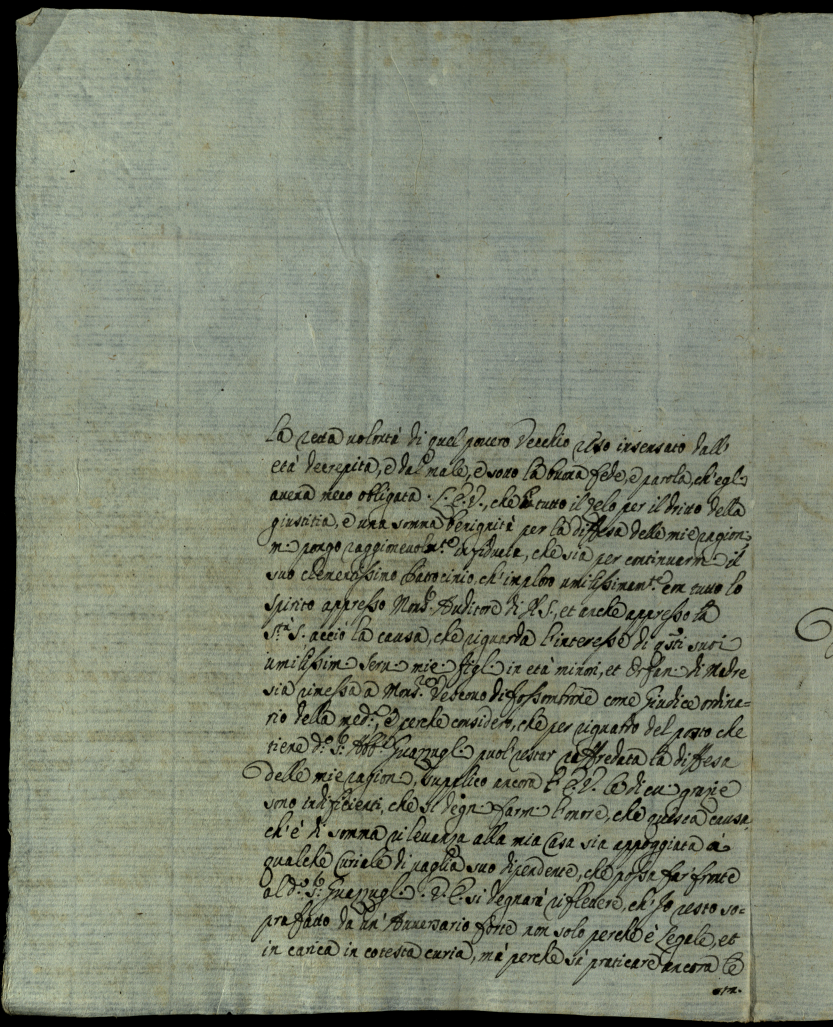 la retta volontà di quel povero Vecchio reso insensato dall'
età decrepita, e dal male, e sono la buona fede, e parola, ch'egli
aveva meco obligata. L'E.V., che è tutto il zelo per il dritto della
giustitia, e una somma benignità per la diffesa delle mie ragioni
mi pongo raggionevolm.te in fiducia, che sia per continuarmi il
suo clementissimo Patrocinio, ch'imploro umilissimam.te con tutto lo
spirito appresso Mons.r Auditore di N.S., et anche appresso la
S.tà S. acciò la causa, che riguarda l'interesse di q.sti suoi
umilissimi Servi miei figli in età minori, et Orfani di Madre
sia rimessa a Mons.r Vescovo di Fossombrone come Giudice ordina=
rio della med.a, e perche considero, che per riguardo del posto che
tiene d.o S.r Abb.e Guazzugli puol restar raffredata la diffesa
delle mie ragioni, supplico ancora l'E.V. la di cui grazie
sono indificienti, che si degni farmi l'onore, che questa causa,
ch'è di somma rilevanza alla mia Casa sia appoggiata à
qualche Curiale di vaglia suo dipendente, che possa far fronte
al d.o S.r Guazzugli. V.E. si degnarà riflettere, ch'Io resto so=
prafatto da un'Avversario forte non solo perche è Legale, et
in carica in cotesta curia, mà perche sà praticare ancora le